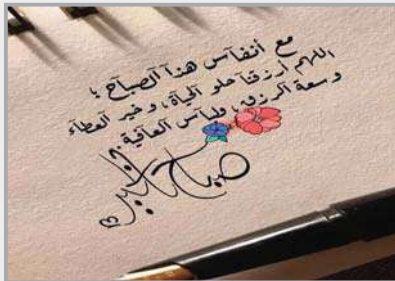 مع أنفآس هذآ آلصبآح ؛
اللهم أرزقنآ حلو آلحيآة، وخير آلعطآء
وسعة آلرزق، ولبآس آلعآفية.
صباح الخير